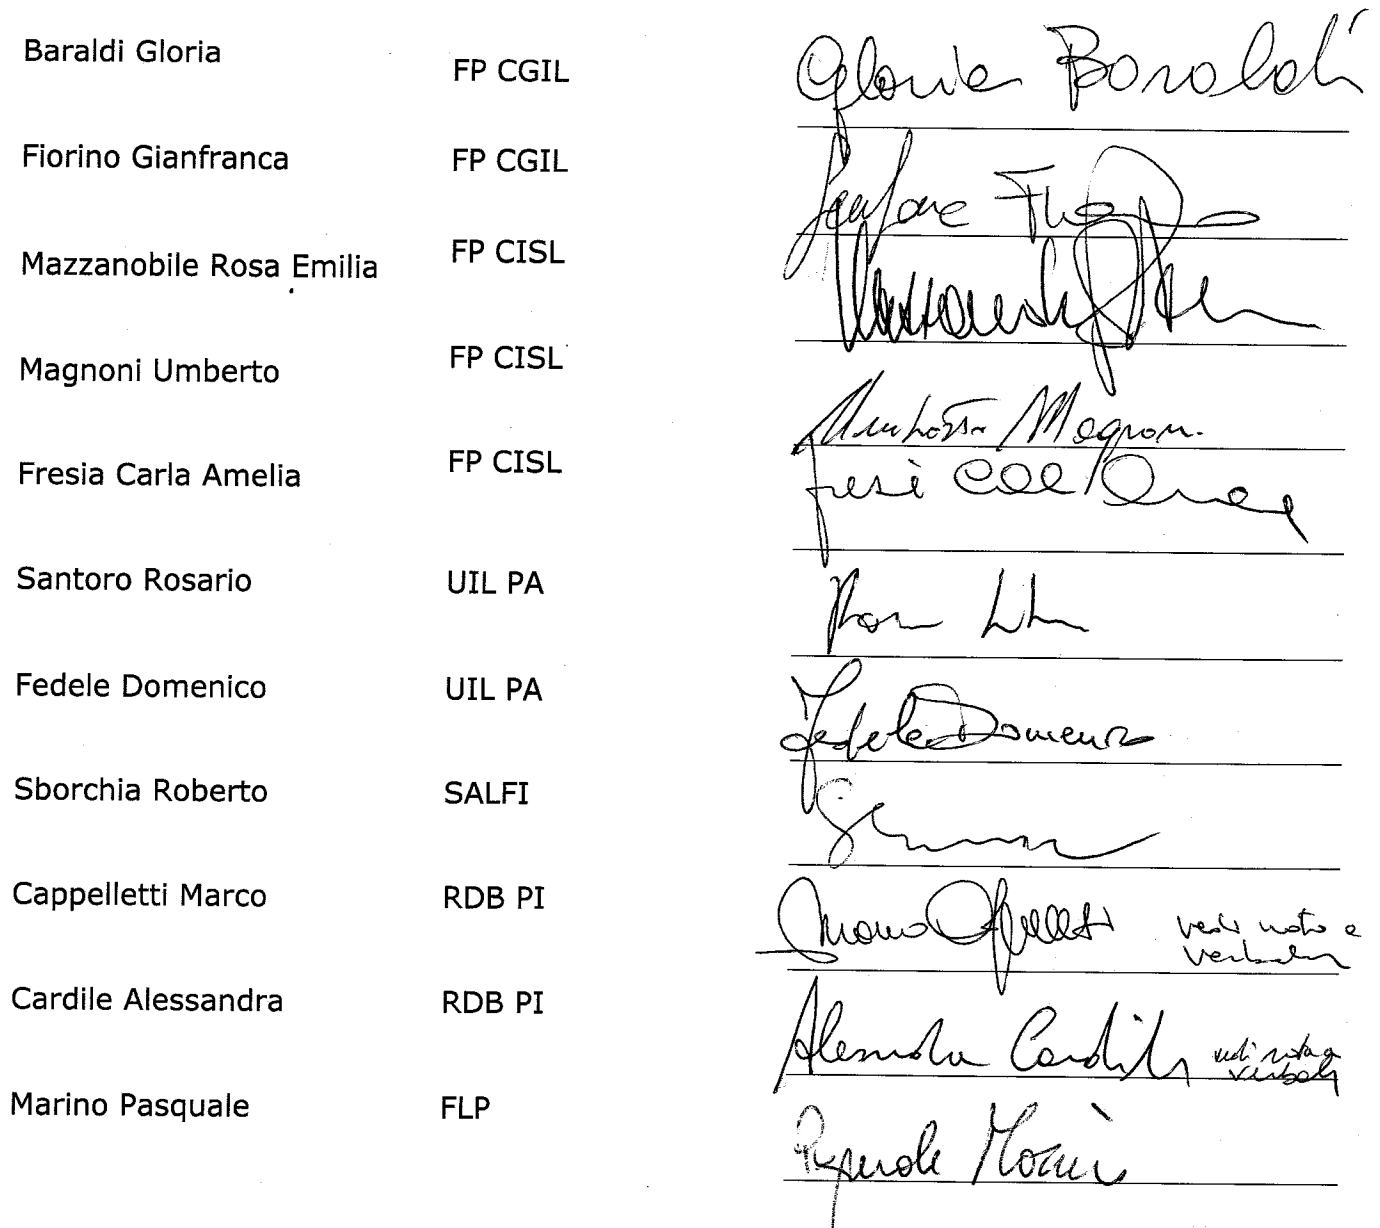 Baraldi Gloria FP CGIL Gloria Baraldi
Fiorino Gianfranca FP CGIL
Mazzanobile Rosa Emilia FP CISL
Magnoni Umberto FP CISL Umberto Magnoni
Fresia Carla Amelia FP CISL
Santoro Rosario UIL PA
Fedele Domenico UIL PA Fedele Domenico
Sborchia Roberto SALFI
Cappelletti Marco RDB PI Marco Cappelletti vedi nota a
verbale
Cardile Alessandra RDB PI Alessandra Cardile vedi nota a
verbale
Marino Pasquale FLP Pasquale Marino